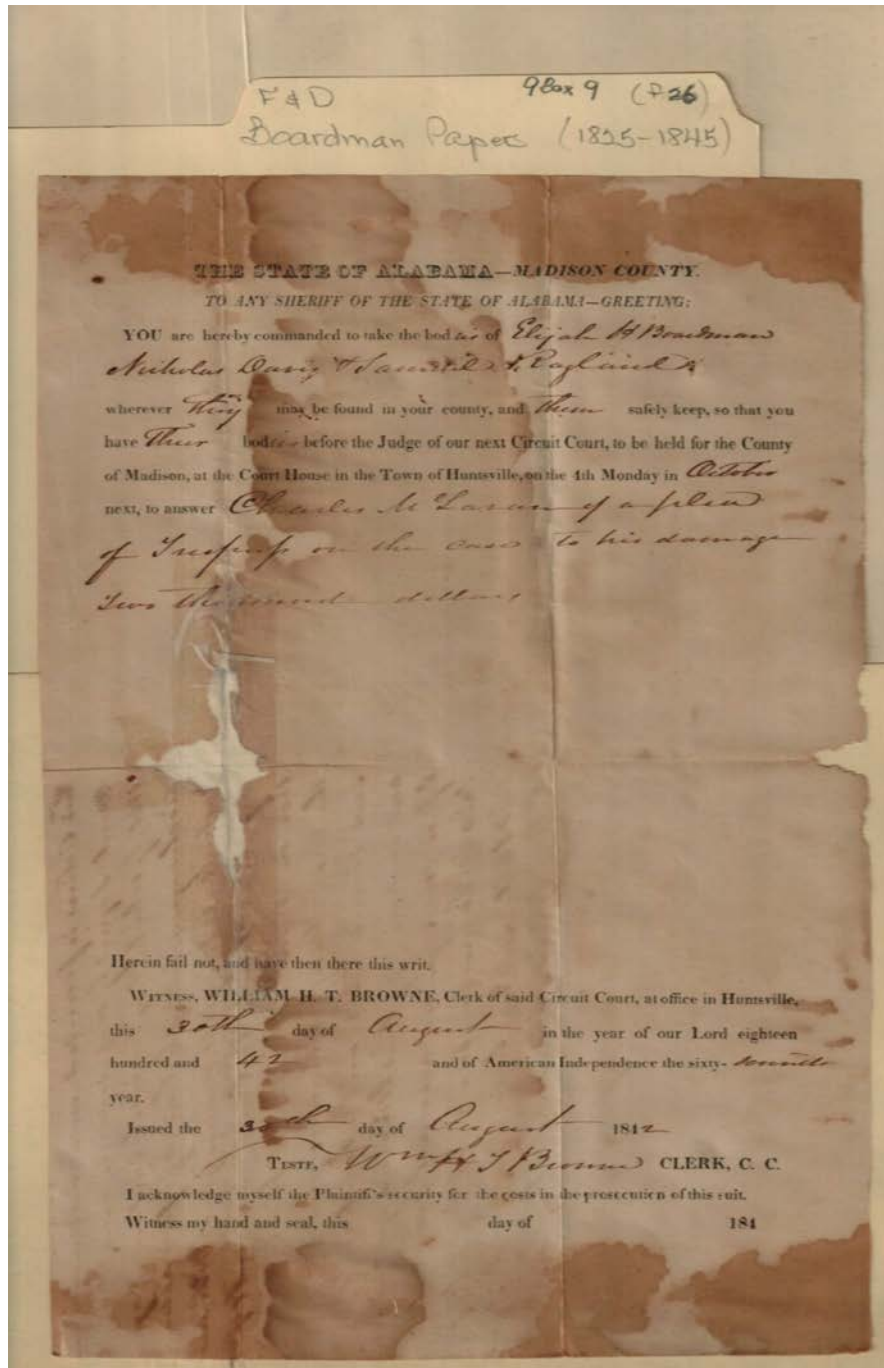 F & D 9 Box 9 (F 26)
Boardman Papers (1825-1845)
THE STATE OF ALABAMA—MADISON COUNTY.
TO ANY SHERIFF OF THE STATE OF ALABAMA—GREETING:
YOU are hereby commanded to take the bodies of Elijah H Boardman
Nicholas Davis & Samuel Ragland
wherever they may be found in your county, and them safely keep, so that you
have Their bodies before the Judge of our next Circuit Court, to be held for the County
of Madison, at the Court House in the Town of Huntsville, on the 4th Monday in October
next, to answer Charles McLaran of a plea
of Trespass on the case to his damage
Two thousand dollars
Herein fail not, and have then there this writ.
WITNESS, WILLIAM H. T. BROWNE, Clerk of said Circuit Court, at office in Huntsville,
this 30th day of August in the year of our Lord eighteen
hundred and 42 and of American Independence the sixty-
year.
Issued the 30th day of August 1842
TESTE, Wm H T Browne CLERK, C. C.
I acknowledge myself the Plaintiff's security for the costs in the prosecution of this suit.
Witness my hand and seal, this day of 184